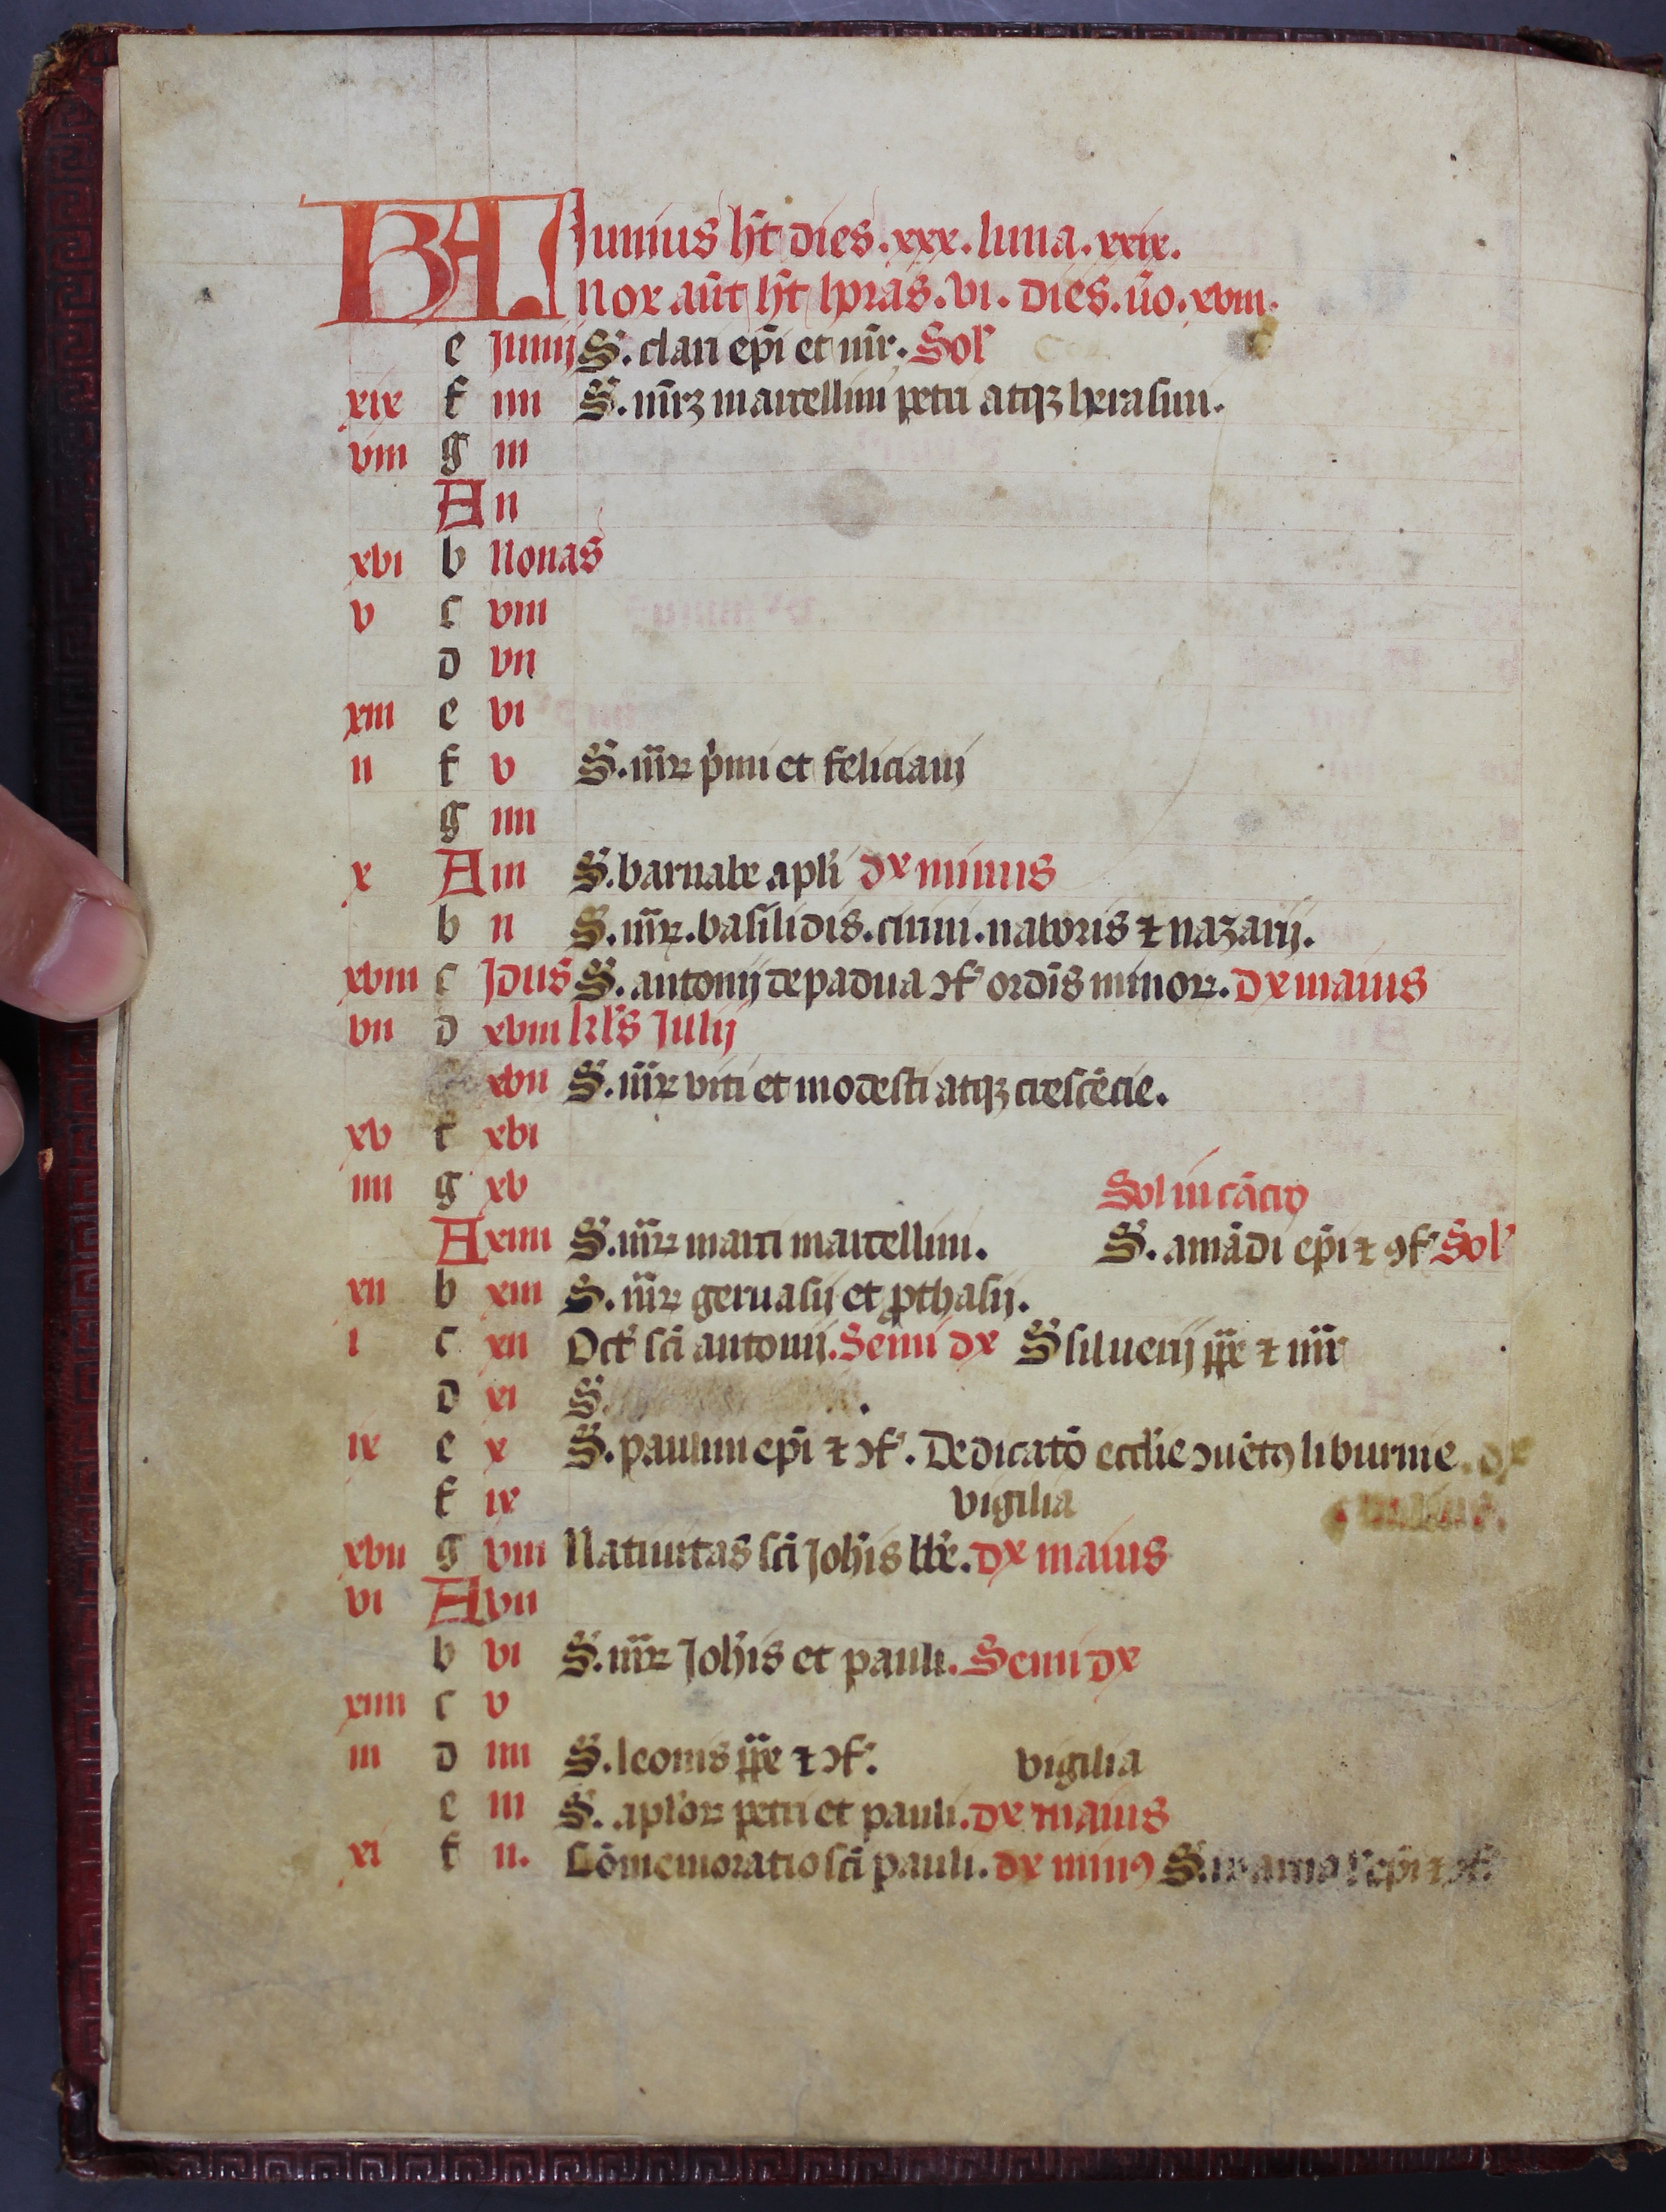 KL Junius ht dies .xxx. luna .xxix.
nox aut ht horas .vi. dies. uo. xviii.
e Junij S. clari epi et mr. Sol'
xix f iiii S. mrz marcellini petri atqz herasmi.
viii g iii
A ii
xvi b Nonas
v c viii
d vii
xiii e vi
ii f v S. mrz pimi et feliciani
g iiii
x A iii S. barnabe apli dx minus
b ii S. mrz. basilidis. cirini. naboris et nazarij.
xviii c Jdus S. antonij de padua 9f' ordis minorz. dx maius
vii d xviii kl's Julij
xvii S. mrz viti et modesti atqz crescecie.
xv f xvi
iiii g xv Sol in cacro
A xiiii S. mrz marci marcellini. S. amadi epi et 9f' Sol'
xii b xiii S. mrz geruasij et pthasij.
i c xii Oct' sci antonij. Semi dx S siluerij ppe et mr
d xi S.
ix e x S. paulini epi et 9f'. Dedicato ecclie 9uet9 liburnie. dx
f ix vigilia
xvii g viii Natiuitas sci Johis bbe. dx maius
vi A vii
b vi S. mrz Johis et pauli. Semi dx
xiiii c v
iii d iiii S. leonis ppe et 9f'. vigilia
e iii S. aplorz petri et pauli. dx maius
xi f ii. Comemoratio sci pauli. dx min9 S. epi et 9f'